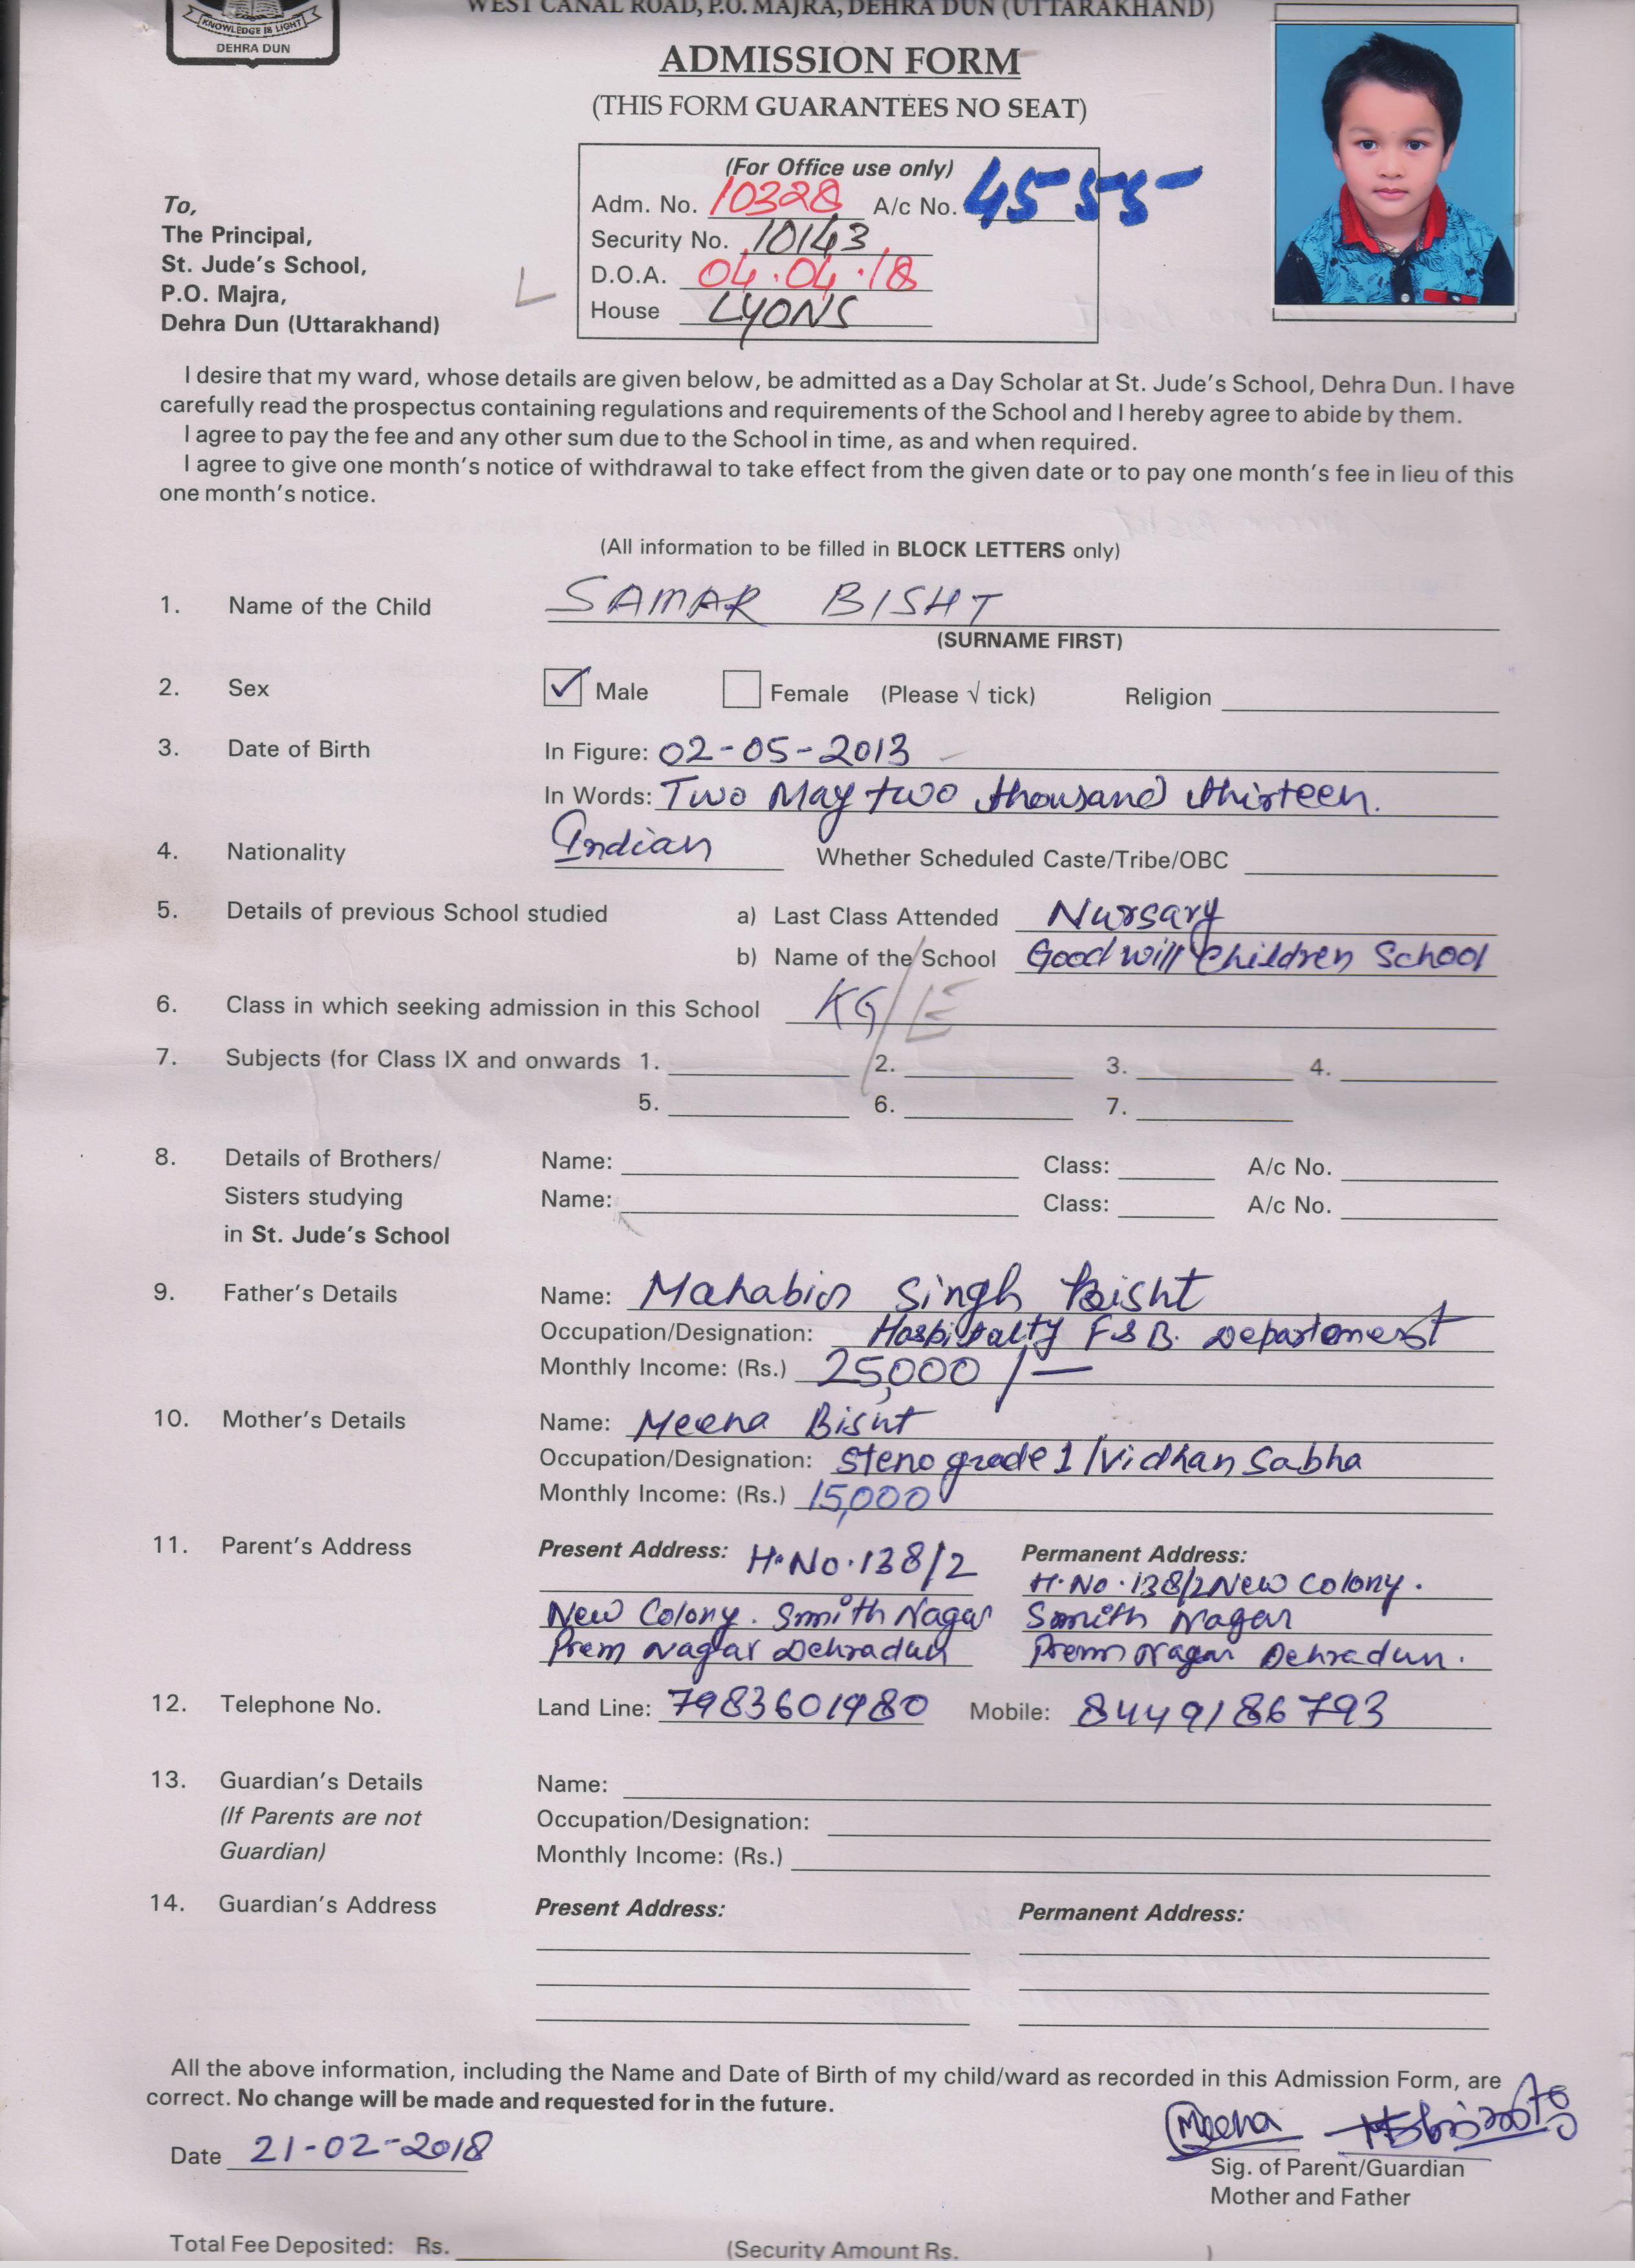 WEST CANAL ROAD, P.O. MAJRA, DEHRA DUN (UTTARAKHAND)
KNOWLEDGE IS LIGHT
DEHRA DUN
ADMISSION FORM
(THIS FORM GUARANTEES NO SEAT)
(For Office use only)
Adm. No. 10328 A/c No. 4555
Security No. 10143
D.O.A. 04.04.18
House LYONS
To,
The Principal,
St. Jude's School,
P.O. Majra,
Dehra Dun (Uttarakhand)
I desire that my ward, whose details are given below, be admitted as a Day Scholar at St. Jude's School, Dehra Dun. I have
carefully read the prospectus containing regulations and requirements of the School and I hereby agree to abide by them.
I agree to pay the fee and any other sum due to the School in time, as and when required.
I agree to give one month's notice of withdrawal to take effect from the given date or to pay one month's fee in lieu of this
one month's notice.
(All information to be filled in BLOCK LETTERS only)
1. Name of the Child SAMAR BISHT
(SURNAME FIRST)
2. Sex ✓ Male Female (Please √ tick) Religion
3. Date of Birth In Figure: 02-05-2013
In Words: Two May two thousand thirteen.
4. Nationality Indian Whether Scheduled Caste/Tribe/OBC
5. Details of previous School studied a) Last Class Attended Nursary
b) Name of the School Good will Children School
6. Class in which seeking admission in this School KG/E
7. Subjects (for Class IX and onwards 1. 2. 3. 4.
5. 6. 7.
8. Details of Brothers/ Name: Class: A/c No.
Sisters studying Name: Class: A/c No.
in St. Jude's School
9. Father's Details Name: Mahabir Singh Bisht
Occupation/Designation: Hospitalty F&B. Departement
Monthly Income: (Rs.) 25,000/-
10. Mother's Details Name: Meena Bisht
Occupation/Designation: Steno grade 1/Vidhan Sabha
Monthly Income: (Rs.) 15,000
11. Parent's Address Present Address: H.No.138/2 Permanent Address:
H.No.138/2 New Colony.
New Colony. Smith Nagar Smith Nagar
Prem Nagar Dehradun Prem Nagar Dehradun.
12. Telephone No. Land Line: 7983601980 Mobile: 8449186793
13. Guardian's Details Name:
(If Parents are not Occupation/Designation:
Guardian) Monthly Income: (Rs.)
14. Guardian's Address Present Address: Permanent Address:
All the above information, including the Name and Date of Birth of my child/ward as recorded in this Admission Form, are
correct. No change will be made and requested for in the future.
Meena
Date 21-02-2018
Sig. of Parent/Guardian
Mother and Father
Total Fee Deposited: Rs. (Security Amount Rs. )